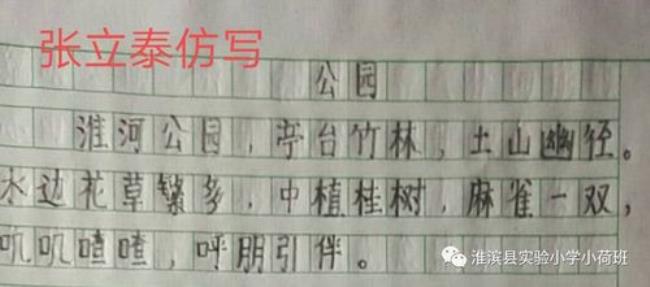 张立泰仿写
公园
淮河公园，亭台竹林，土山幽径。
水边花草繁多，中植桂树，麻雀一双，
叽叽喳喳，呼朋引伴。
淮滨县实验小学小荷班